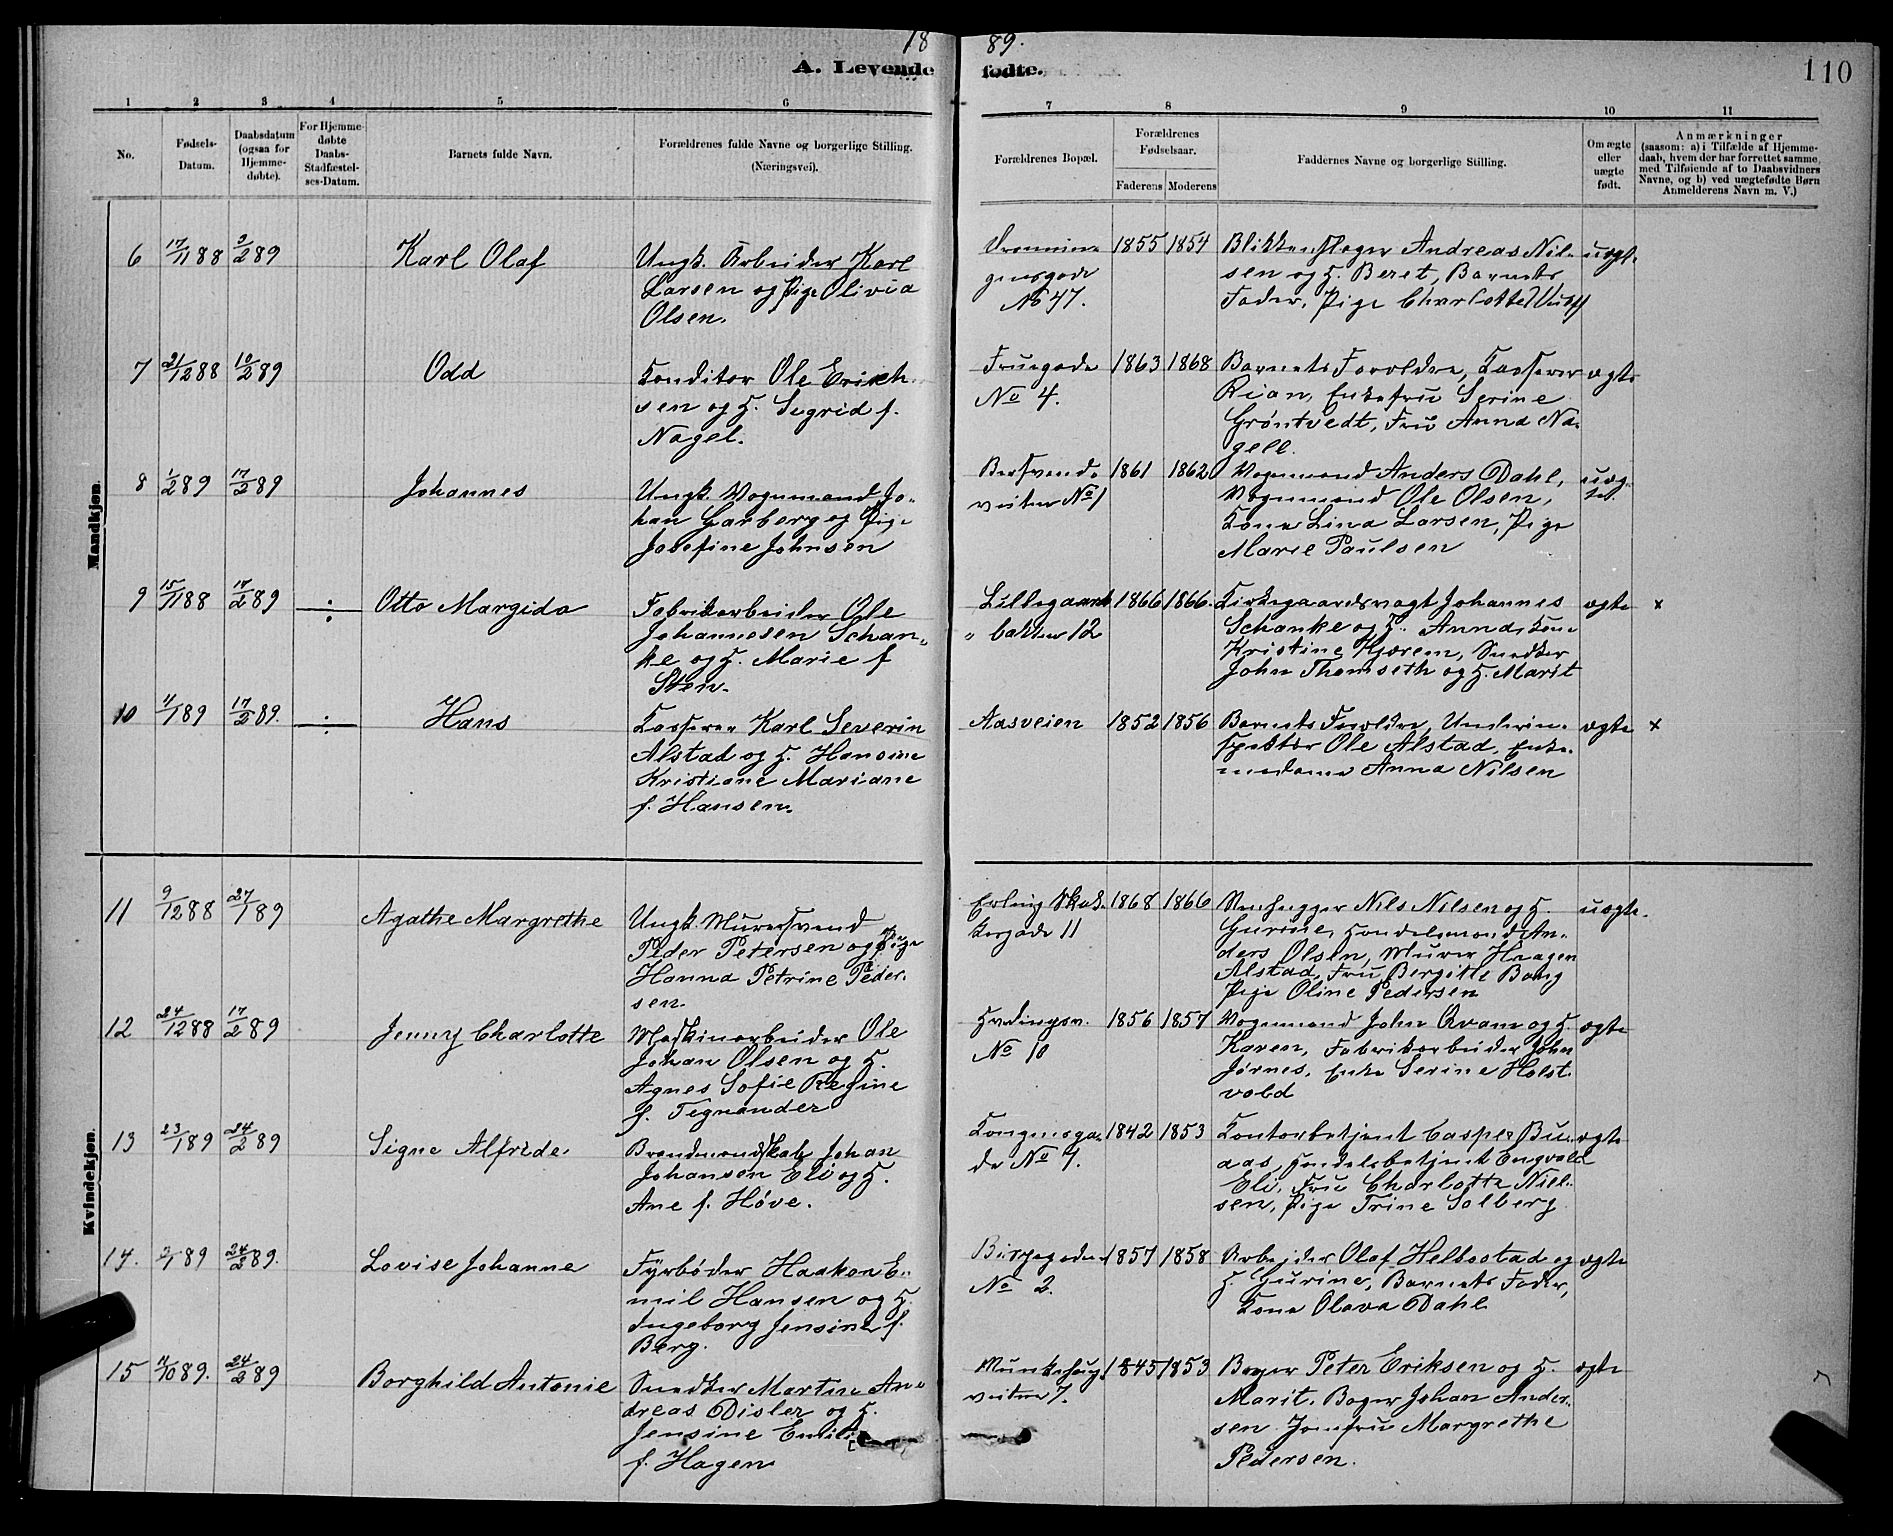 18 89.
A. Levende fødte.
110
1 2 3 4 5 6 7 8 9 10 11
No.
Fødsels-
Datum.
Daabsdatum
(ogsaa for
Hjemme-
døbte).
For Hjemme-
døbte
Daabs-
Stadfæstel-
ses-Datum.
Barnets fulde Navn.
Forældrenes fulde Navne og borgerlige Stilling.
(Næringsvei).
Forældrenes Bopæl.
Forældrenes
Fødselsaar.
Faderens Moderens
Faddernes Navne og borgerlige Stilling.
Om ægte
eller
uægte
født.
Anmærkninger
(saasom: a) i Tilfælde af Hjemme-
daab, hvem der har forrettet samme,
med Tilføiende af to Daabsvidners
Navne, og b) ved uægtefødte Børn
Anmelderens Navn m. V.)
Mandkjøn.
6 17/11 88 3/2 89 Karl Olaf
Ungk. Arbeider Karl
Larsen og Pige Olivia
Olsen.
gensgade
No 47.
1855 1854
Blikkenslager Andreas Nil-
sen og H. Beret, Barnets
Fader, Pige Charlotte
uægte
7 21/12 88 10/2 89 Odd
Konditor Ole Erich-
sen og H. Sigrid f.
Nagel.
Fruegade
No 4.
1863 1868
Barnets Forældre, Kasserer
Rian, Enkefru Serine
Grøntvedt, Fru Anna Na-
gell.
ægte
8 1/2 89 17/2 89 Johannes
Ungk. Vognmand Jo-
han Garberg og Pige
Josefine Johnsen
Bersvends
veiten No 1
1861 1862
Vognmand Anders Dahl,
Vognmand Ole Olsen,
Kone Lina Larsen, Pige
Marie Paulsen
uæg-
te.
9 15/11 88 17/2 89 ÷ Otto Margido
Fabrikarbeider Ole
Johannesen Schan-
ke og H. Marie f
Sten.
Lillegaards
" bakken 12
1866 1866.
Kirkegaardsvagt Johannes
Schanke og H. Anna, Kone
Kristine Hjærem, Snedker
John Thomseth og H. Marit
ægte x
10 4/1 89 17/2 89. ÷ Hans
Kasserer Karl Severin
Alstad og H. Hansine
Kristiane Mariane
f. Hansen.
Aasveien
1852 1856
Barnets Forældre, Underin-
spektør Ole Alstad, Enke-
madame Anna Nilsen
ægte x
Kvindekjøn.
11 9/12 88 27/1 89 Agathe Margrethe
Ungk. Murersvend
Peder Petersen og Pige
Hanna Petrine Peder-
sen.
Erling Skak-
kesgade 11
1868 1866
Stenhugger Nils Nilsen og H.
Gurine, Handelsmand An-
ders Olsen, Murer Haagen
Alstad, Fru Bergitte Bang
Pige Oline Pedersen
uægte.
12 24/12 88 17/2 89 Jenny Charlotte
Maskinarbeider Ole
Johan Olsen og H.
Agnes Sofie Regine
f. Tegnander
No 10
1856 1857
Vognmand John Kvam og H.
Karen, Fabrikarbeider John
Jørnes, Enke Serine Holst-
vold
ægte
13 23/1 89 24/2 89 Signe Alfride.
Brandmandskab Johan
Johansen Eli og H.
Ane f. Høve.
Kongensga-
de No 7.
1842 1853
Kontorbetjent Casper Bu-
aas, Handelsbetjent Engvald
Eli, Fru Charlotte Niel-
sen, Pige Trine Solberg
ægte
14. 2/1 89 24/2 89. Lovise Johanne
Fyrbøder Haakon E-
mil Hansen og H.
Ingeborg Jensine f.
Berg.
Bispegaden
No 2.
1857 1858
Arbejder Olaf Helbostad og
H. Gurine, Barnets Fader,
Kone Olava Dahl
ægte
15 11/10 89. 24/2 89 Borghild Antonie
Snedker Martin An-
dreas Disler og H.
Jensine Emilie
f. Hagen
Munkehaug
veiten 7.
1845 1853
Bager Peter Eriksen og H.
Marit. Bager Johan Ander-
sen. Jomfru Margrethe
Pedersen.
ægte